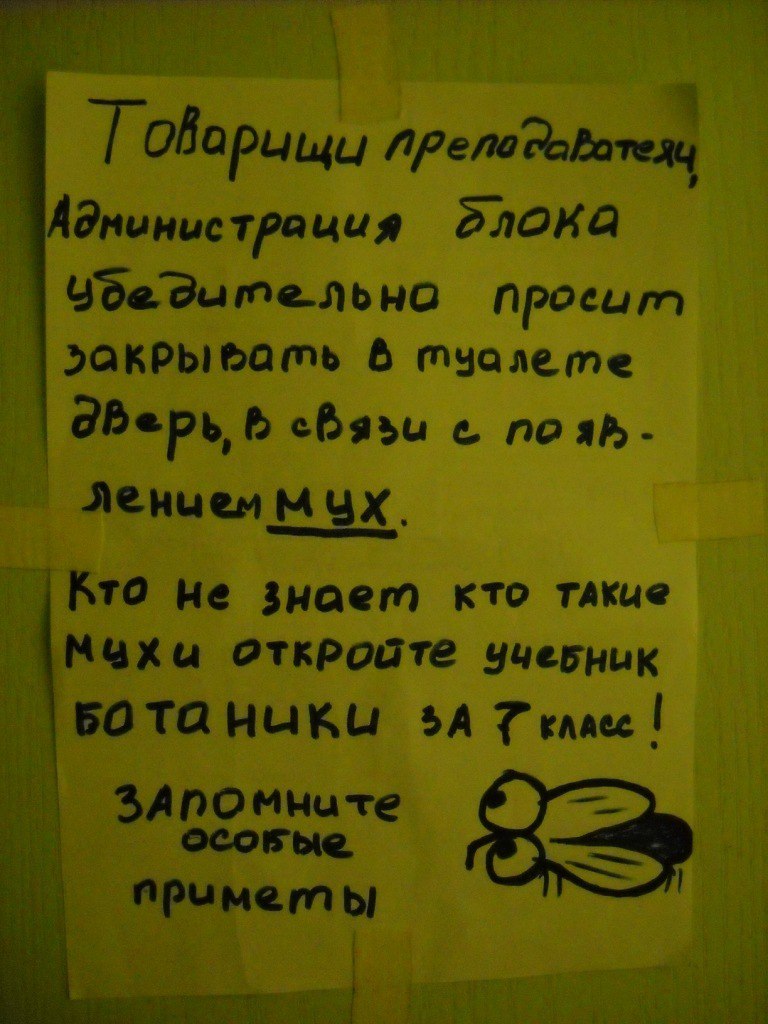 Товарищи преподаватели,
Администрация блока
убедительно просит
закрывать в туалете
дверь, в связи с появ-
лением мух.
Кто не знает кто такие
мухи откройте учебник
ботаники за 7 класс!
Запомните
особые
приметы